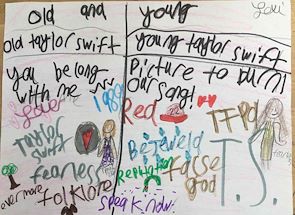 old and young
Lori
old taylor swift
young taylor swift
you belong
with me
1989
Lover
Taylor
swift
fearless
ever more
folklore
Picture to burn!
our song!
Red
TTPD
Bejeweld
Reputation
false
god
T.S.
speak know